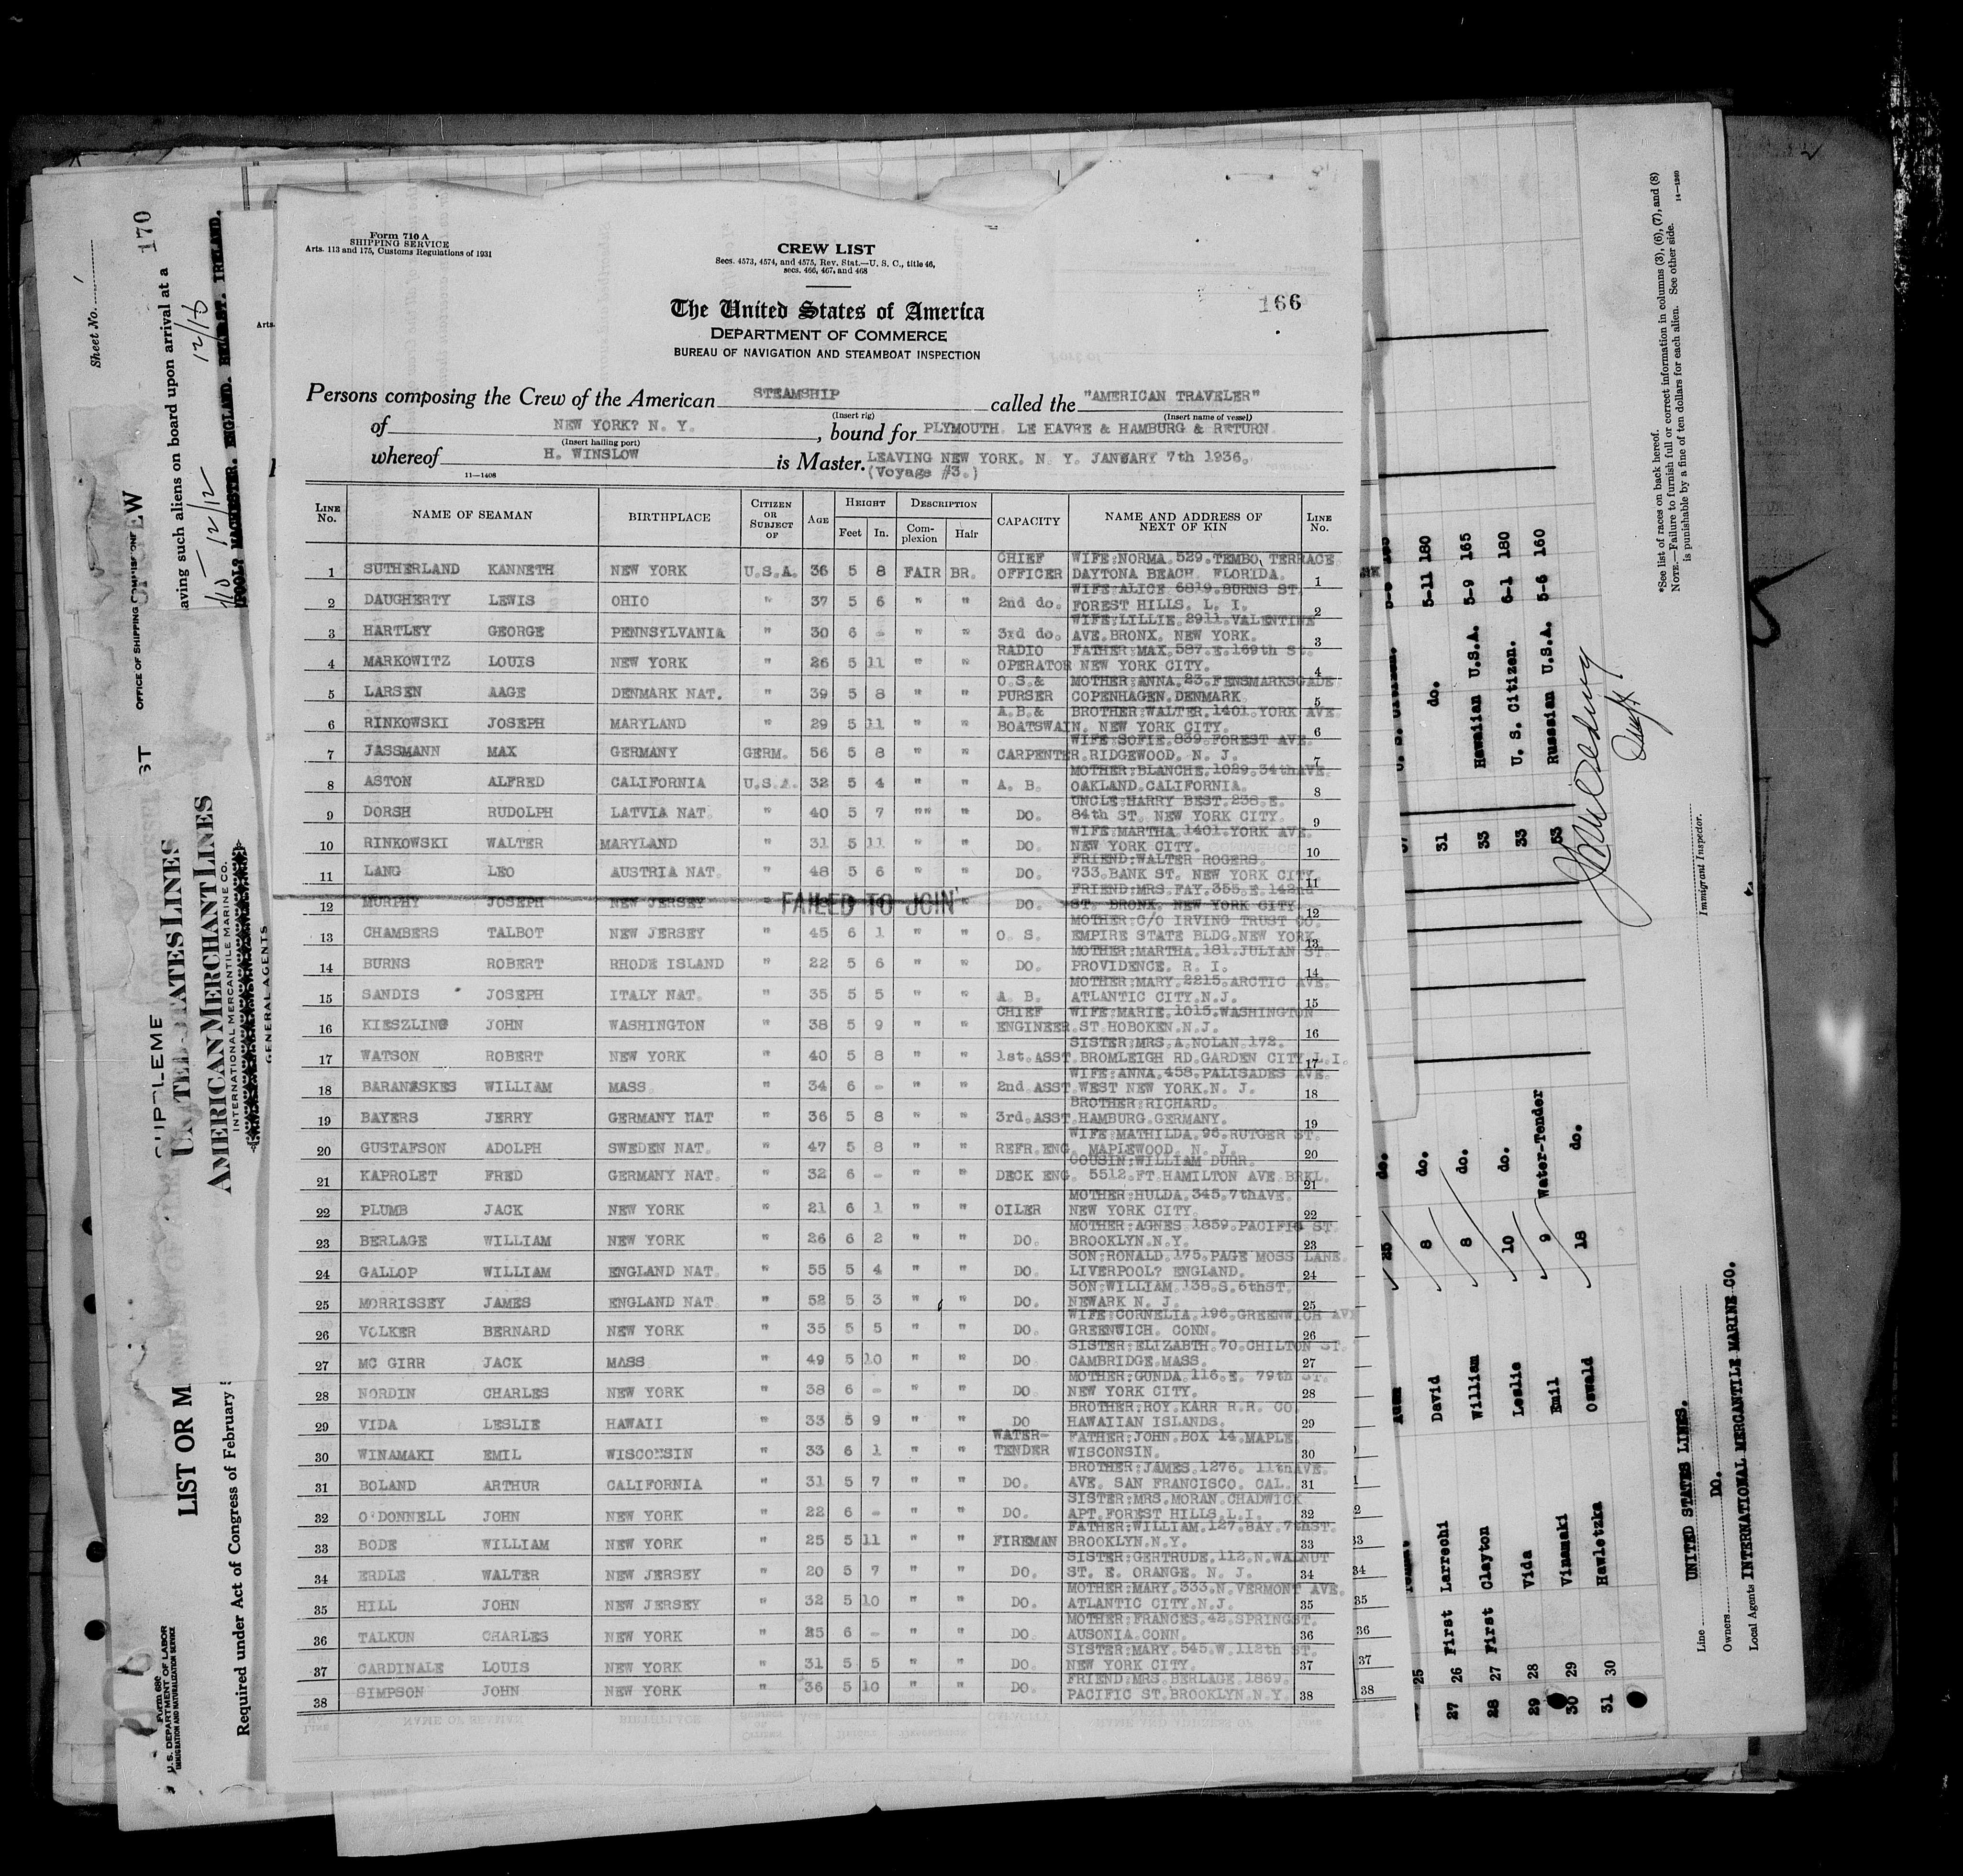 Form 710 A
SHIPPING SERVICE
Arts. 113 and 175, Customs Regulations of 1931
CREW LIST
Secs. 4573, 4574, and 4575, Rev. Stat.—U. S. C., title 46,
secs. 466, 467, and 468
The United States of America
DEPARTMENT OF COMMERCE
BUREAU OF NAVIGATION AND STEAMBOAT INSPECTION
166
Persons composing the Crew of the American STEAMSHIP called the "AMERICAN TRAVELER"
(Insert rig) (Insert name of vessel)
of NEW YORK? N. Y. , bound for PLYMOUTH. LE HAVRE & HAMBURG & RETURN
(Insert hailing port)
whereof H. WINSLOW is Master. LEAVING NEW YORK. N. Y. JANUARY 7th 1936.
11—1408 (Voyage #3.)
LINE No. NAME OF SEAMAN BIRTHPLACE CITIZEN OR SUBJECT OF AGE HEIGHT Feet In. DESCRIPTION Complexion Hair CAPACITY NAME AND ADDRESS OF NEXT OF KIN LINE No.
1 SUTHERLAND KANNETH NEW YORK U.S.A. 36 5 8 FAIR BR. CHIEF OFFICER WIFE:NORMA.529.TEMBO TERRACE DAYTONA BEACH. FLORIDA. 1
2 DAUGHERTY LEWIS OHIO " 37 5 6 " " 2nd do. WIFE:ALICE 6819.BURNS ST. FOREST HILLS. L. I. 2
3 HARTLEY GEORGE PENNSYLVANIA " 30 6 - " " 3rd do. WIFE:LILLIE.2911.VALENTINE AVE.BRONX. NEW YORK. 3
4 MARKOWITZ LOUIS NEW YORK " 26 5 11 " " RADIO OPERATOR FATHER:MAX.587.E.169th St. NEW YORK CITY. 4
5 LARSEN AAGE DENMARK NAT. " 39 5 8 " " O.S.& PURSER MOTHER:ANNA.23.FENSMARKSGADE COPENHAGEN.DENMARK 5
6 RINKOWSKI JOSEPH MARYLAND " 29 5 11 " " A.B.& BOATSWAIN. BROTHER:WALTER.1401.YORK AVE. NEW YORK CITY. 6
7 JASSMANN MAX GERMANY GERM. 56 5 8 " " CARPENTER. WIFE:SOFIE.839.FOREST AVE. RIDGEWOOD. N. J. 7
8 ASTON ALFRED CALIFORNIA U.S.A. 32 5 4 " " A. B. MOTHER:BLANCHE.1029.34thAVE. OAKLAND.CALIFORNIA. 8
9 DORSH RUDOLPH LATVIA NAT. " 40 5 7 "" " DO. UNCLE:HARRY BEST.238.E. 84th ST. NEW YORK CITY. 9
10 RINKOWSKI WALTER MARYLAND " 31 5 11 " " DO. WIFE:MARTHA.1401.YORK AVE. NEW YORK CITY. 10
11 LANG LEO AUSTRIA NAT. " 48 5 6 " " DO. FRIEND:WALTER ROGERS. 733.BANK ST. NEW YORK CITY. 11
12 MURPHY JOSEPH NEW JERSEY " FAILED TO JOIN " DO. FRIEND:MRS.FAY.355.E.142nd ST. BRONX. NEW YORK CITY. 12
13 CHAMBERS TALBOT NEW JERSEY " 45 6 1 " " O. S. MOTHER:C/O IRVING TRUST CO. EMPIRE STATE BLDG.NEW YORK. 13
14 BURNS ROBERT RHODE ISLAND " 22 5 6 " " DO. MOTHER:MARTHA.181.JULIAN ST. PROVIDENCE. R. I. 14
15 SANDIS JOSEPH ITALY NAT. " 35 5 5 " " A. B. MOTHER:MARY.2215.ARCTIC AVE. ATLANTIC CITY.N.J. 15
16 KIESZLING JOHN WASHINGTON " 38 5 9 " " CHIEF ENGINEER. WIFE:MARIE.1015.WASHINGTON ST HOBOKEN.N.J. 16
17 WATSON ROBERT NEW YORK " 40 5 8 " " 1st.ASST. SISTER:MRS.A.NOLAN.172. BROMLEIGH RD.GARDEN CITY.L.I. 17
18 BARANASKES WILLIAM MASS. " 34 6 - " " 2nd.ASST. WIFE:ANNA.458.PALISADES AVE. WEST NEW YORK.N. J. 18
19 BAYERS JERRY GERMANY NAT " 36 5 8 " " 3rd.ASST. BROTHER:RICHARD. HAMBURG.GERMANY. 19
20 GUSTAFSON ADOLPH SWEDEN NAT. " 47 5 8 " " REFR.ENG. WIFE:MATHILDA.96.RUTGER ST. MAPLEWOOD. N. J. 20
21 KAPROLET FRED GERMANY NAT. " 32 6 - " " DECK ENG. COUSIN:WILLIAM DURR. 5512.FT.HAMILTON AVE.BRKL. 21
22 PLUMB JACK NEW YORK " 21 6 1 " " OILER MOTHER:HULDA.345.7thAVE. NEW YORK CITY. 22
23 BERLAGE WILLIAM NEW YORK " 26 6 2 " " DO. MOTHER:AGNES.1859.PACIFIC ST. BROOKLYN.N.Y. 23
24 GALLOP WILLIAM ENGLAND NAT. " 55 5 4 " " DO. SON:RONALD.175.PAGE MOSS LANE. LIVERPOOL? ENGLAND. 24
25 MORRISSEY JAMES ENGLAND NAT " 52 5 3 " " DO. SON:WILLIAM.138.S.6thST. NEWARK N. J. 25
26 VOLKER BERNARD NEW YORK " 35 5 5 " " DO. WIFE:CORNELIA.196.GREENWICH AVE GREENWICH. CONN. 26
27 MC GIRR JACK MASS " 49 5 10 " " DO SISTER:ELIZABTH.70.CHILTON ST. CAMBRIDGE.MASS. 27
28 NORDIN CHARLES NEW YORK " 38 6 - " " DO MOTHER:GUNDA.116.E. 79th ST. NEW YORK CITY. 28
29 VIDA LESLIE HAWAII " 33 5 9 " " DO BROTHER:ROY.KARR R.R. CO. HAWAIIAN ISLANDS. 29
30 WINAMAKI EMIL WISCONSIN " 33 6 1 " " WATER-TENDER FATHER:JOHN.BOX 14.MAPLE. WISCONSIN. 30
31 BOLAND ARTHUR CALIFORNIA " 31 5 7 " " DO. BROTHER:JAMES.1276. 11thAVE. AVE. SAN FRANCISCO. CAL. 31
32 O'DONNELL JOHN NEW YORK " 22 6 - " " DO. SISTER:MRS.MORAN.CHADWICK APT.FOREST HILLS.L.I. 32
33 BODE WILLIAM NEW YORK " 25 5 11 " " FIREMAN FATHER:WILLIAM.127.BAY.7thST. BROOKLYN.N.Y. 33
34 ERDLE WALTER NEW JERSEY " 20 5 7 " " DO. SISTER:GERTRUDE.112.N.WALNUT ST. E. ORANGE. N. J. 34
35 HILL JOHN NEW JERSEY " 32 5 10 " " DO. MOTHER:MARY.333.N.VERMONT AVE. ATLANTIC CITY.N.J. 35
36 TALKUN CHARLES NEW YORK " 25 6 - " " DO. MOTHER:FRANCES.42.SPRINGST. AUSONIA.CONN. 36
37 CARDINALE LOUIS NEW YORK " 31 5 5 " " DO. SISTER:MARY.545.W.112th ST. NEW YORK CITY. 37
38 SIMPSON JOHN NEW YORK " 36 5 10 " " DO. FRIEND:MRS.BERLAGE.1869. PACIFIC ST.BROOKLYN.N.Y. 38
Sheet No.
170
aving such aliens on board upon arrival at a
12/12 12/16
OFFICE OF SHIPPING
UNITED STATES LINES
AMERICAN MERCHANT LINES
INTERNATIONAL MERCANTILE MARINE CO.
GENERAL AGENTS
LIST OR M
Required under Act of Congress of February
Form 680
U.S. DEPARTMENT OF LABOR
IMMIGRATION AND NATURALIZATION SERVICE
27 26 First Larrechi David 8 do. 31 do. 5-11 180
28 27 First Clayton William 8 do. 33 Hawaiian U.S.A. 5-9 165
29 28 Vida Leslie 10 do. 33 U. S. Citizen. 6-1 180
30 29 Vinamaki Emil 9 Water-Tender 53 Russian U.S.A. 5-6 160
31 30 Hawletzka Oswald 18 do.
Immigrant Inspector.
Line UNITED STATES LINES.
Owners DO.
Local Agents INTERNATIONAL MERCANTILE MARINE CO.
*See list of races on back hereof.
NOTE.—Failure to furnish full or correct information in columns (3), (6), (7), and (8)
is punishable by a fine of ten dollars for each alien. See other side.
14—1240